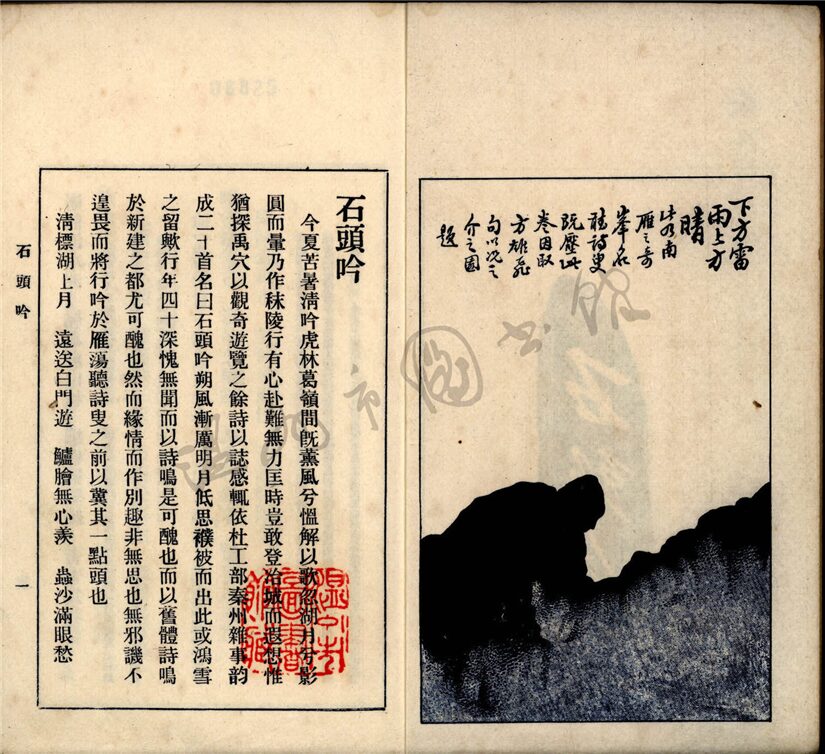 下方雷
雨上方
晴
此為南
雁之奇
峯名
聽詩叟
既歷此
卷因取
方雄飛
句以況之
介之圖
題
石頭吟
今夏苦暑淸吟虎林葛嶺間旣薰風兮慍解以歌忽湖月兮影
圓而暈乃作秣陵行有心赴難無力匡時豈敢登冶城而遐想惟
猶探禹穴以觀奇遊覽之餘詩以誌感輒依杜工部秦州雜事韵
成二十首名曰石頭吟朔風漸厲明月低思襆被而出此或鴻雪
之留歟行年四十深愧無聞而以詩鳴是可醜也而以舊體詩鳴
於新建之都尤可醜也然而緣情而作別趣非無思也無邪譏不
遑畏而將行吟於雁蕩聽詩叟之前以冀其一點頭也
淸標湖上月　遠送白門遊　鱸膾無心羨　蟲沙滿眼愁
石頭吟
一
溫州市圖書館